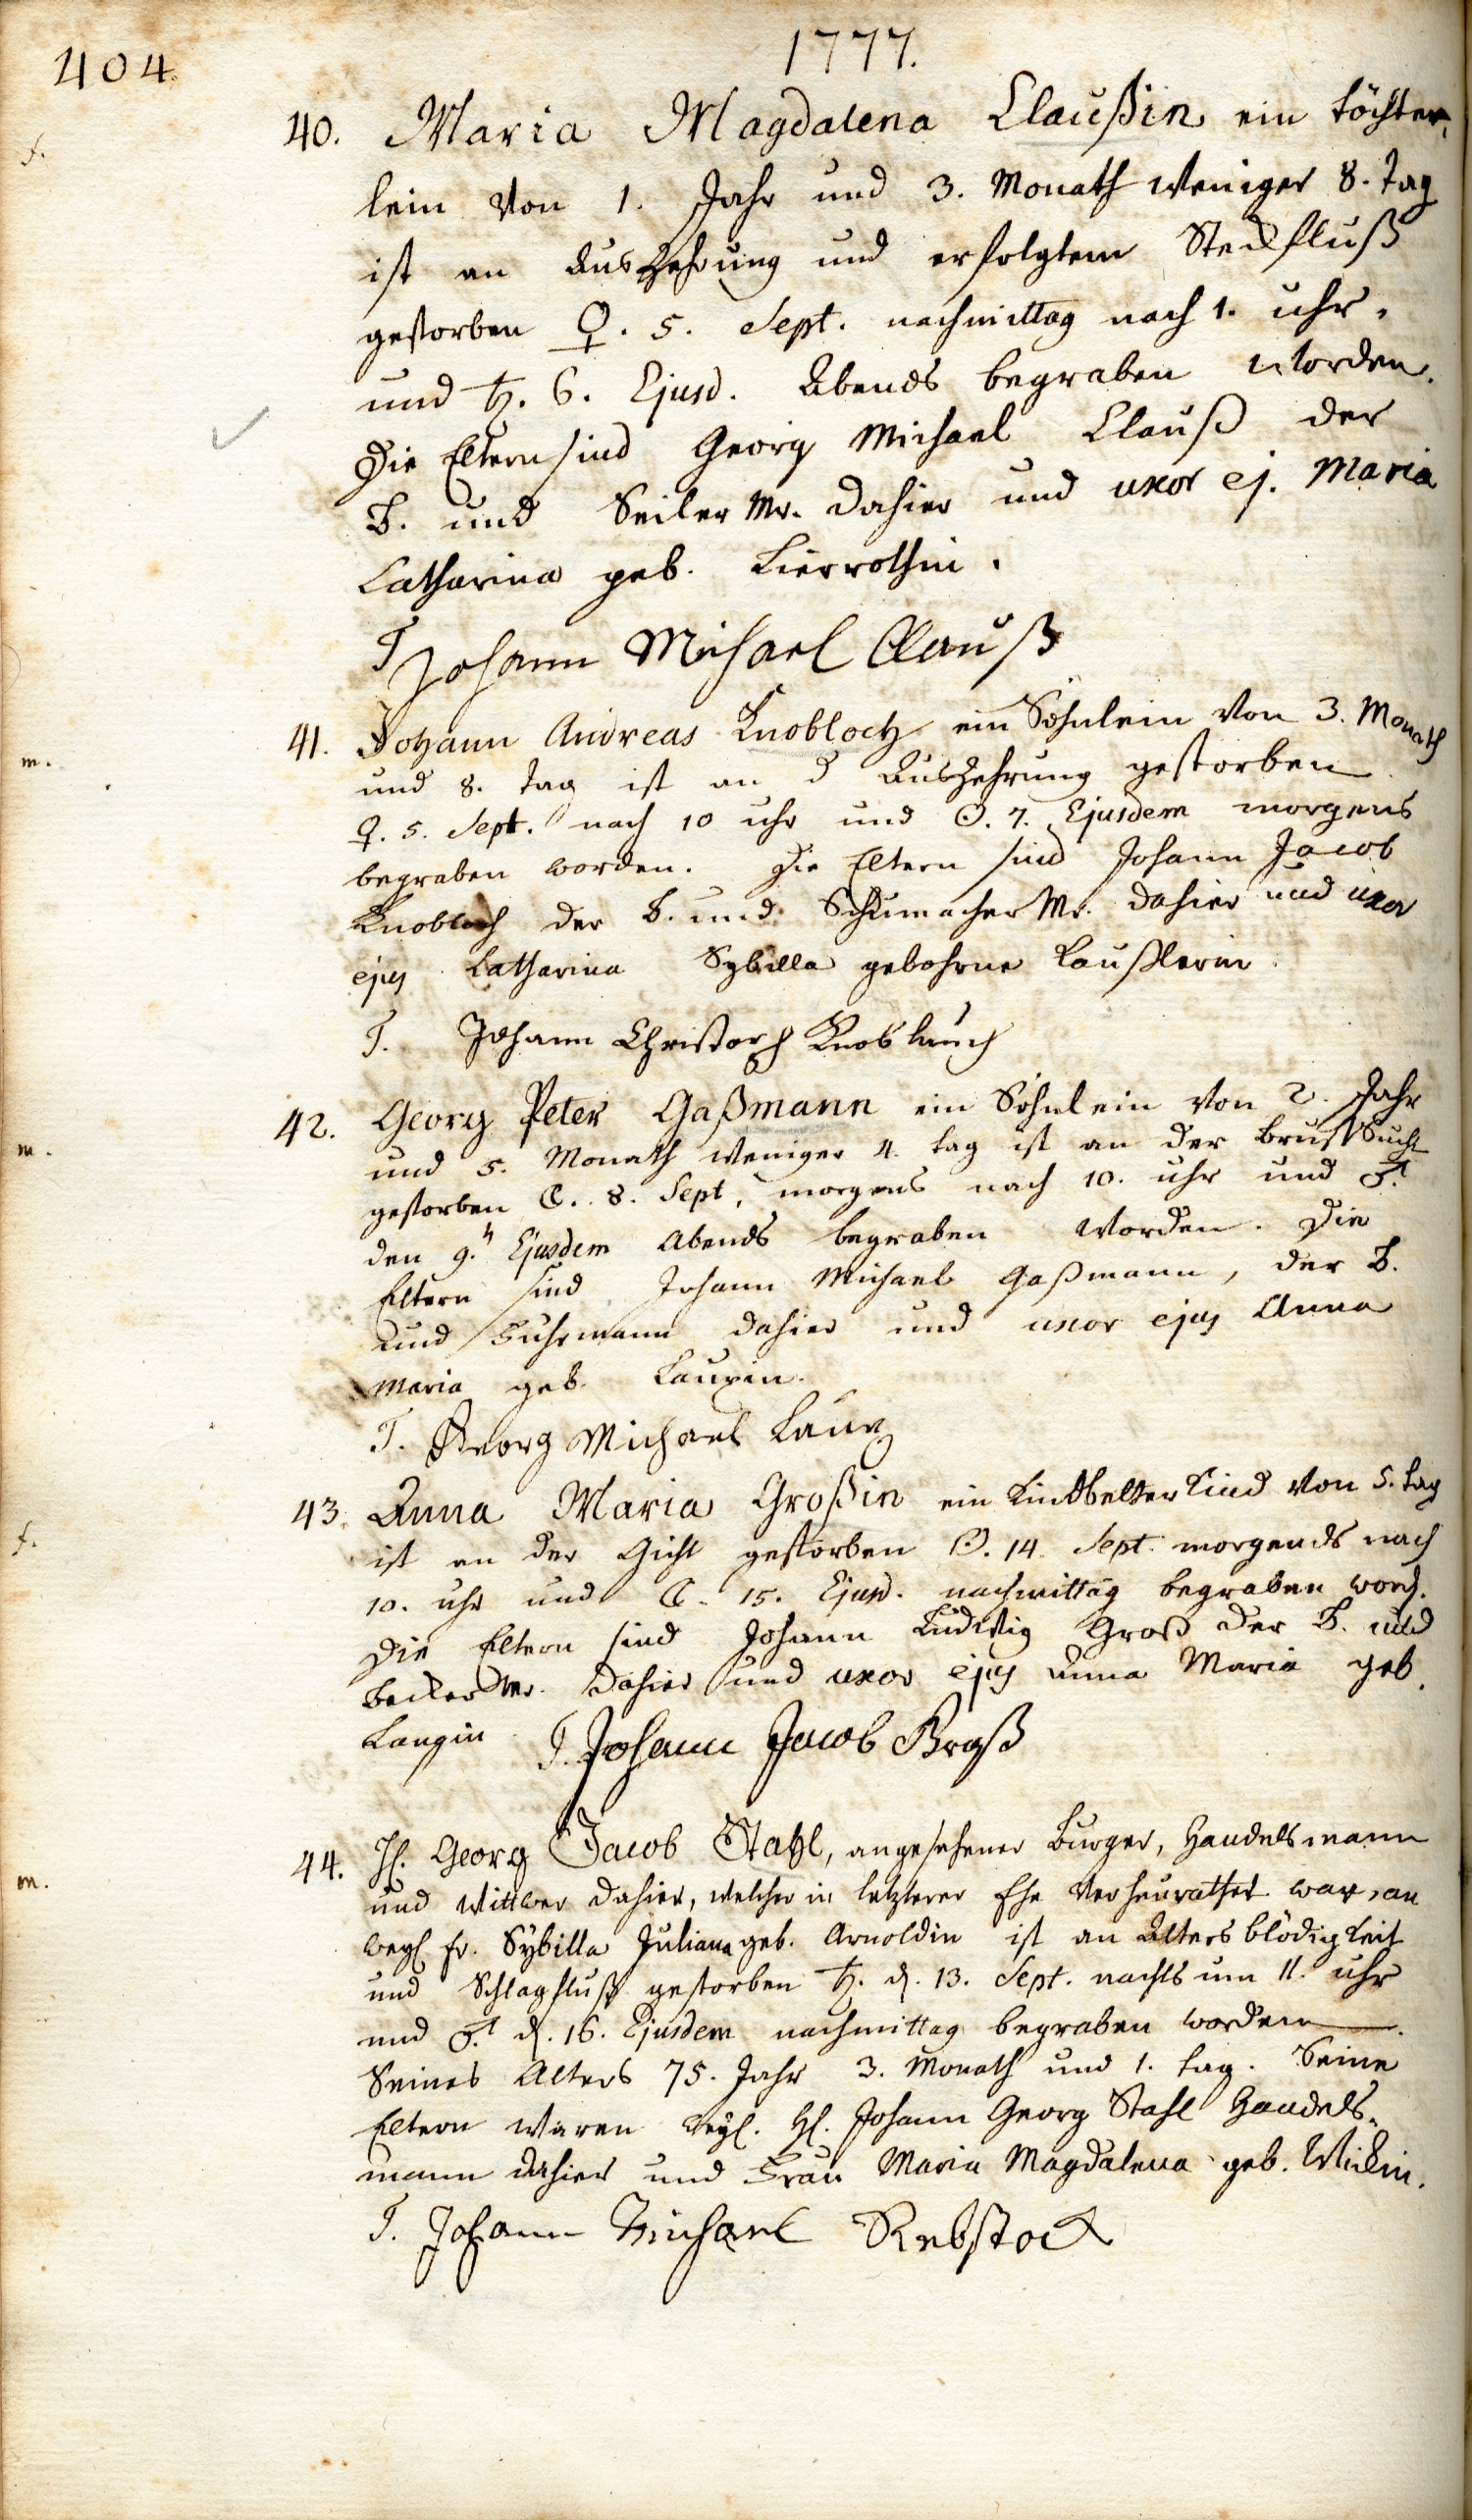 404.
1777.
f.
40. Maria Magdalena Claußin ein töchter,
lein von 1. Jahr und 3. Monath weniger 8. Tag
ist an Auszehrung und erfolgtem Steckfluß
gestorben ♀. 5. Sept. nachmittag nach 1. uhr,
und ♄. 6. Ejusd. Abends begraben worden.
Die Eltern sind Georg Michael Clauß der
B. und Seiler Mr. dahier und uxor ej. Maria
Catharina geb. Bierrothin.
T Johann Michael Clauß
m.
41. Johann Andreas Knobloch ein Söhnlein von 3. Monath
und 8. Tag ist an d Auszehrung gestorben
♀. 5. Sept. nach 10 uhr und ☉. 7. Ejusdem morgens
begraben worden. Die Eltern sind Johann Jacob
Knobloch der B. und Schumacher Mr. dahier und uxor
ejus Catharina Sybilla gebohrne
T. Johann Christoph Knoblauch
m.
42. Georg Peter Gaßmann ein Söhnlein von 2. Jahr
und 5. Monath weniger 4. tag ist an der Brust Sucht
gestorben ☾. 8. Sept, morgens nach 10. uhr und ♂.
den 9. Ejusdem Abends begraben worden. Die
Eltern sind Johann Michael Gaßmann, der B.
und Fuhrmann dahier und uxor ejus Anna
Maria geb.
T. Georg Michael
f.
43. Anna Maria Großin ein Kindbetter Kind von 5. tag
ist an der Gicht gestorben ☉. 14. Sept. morgends nach
10. uhr und ☾. 15. Ejusd. nachmittag begraben word.
Die Eltern sind Johann Ludwig Groß der B. und
Becker Mr. dahier und uxor ejus Anna Maria geb.
Langin T. Johann Jacob Groß
m.
44. H. Georg Jacob Stahl, angesehener Burger, Handelsmann
und Wittwer dahier, welcher in letzterer Ehe verheurathet war, an
weyl. Fr. Sybilla Juliana geb. Arnoldin ist an Altersblödigkeit
und Schlagfluß gestorben ♄. d. 13. Sept. nachts um 11. uhr
und ♂. d. 16. Ejusdem nachmittag begraben worden.
Seines Alters 75. Jahr 3. Monath und 1. tag. Seine
Eltern waren weyl. H. Johann Georg Stahl Handels,
mann dahier und Frau Maria Magdalena geb. Wickin.
T. Johann Michael Rebstock